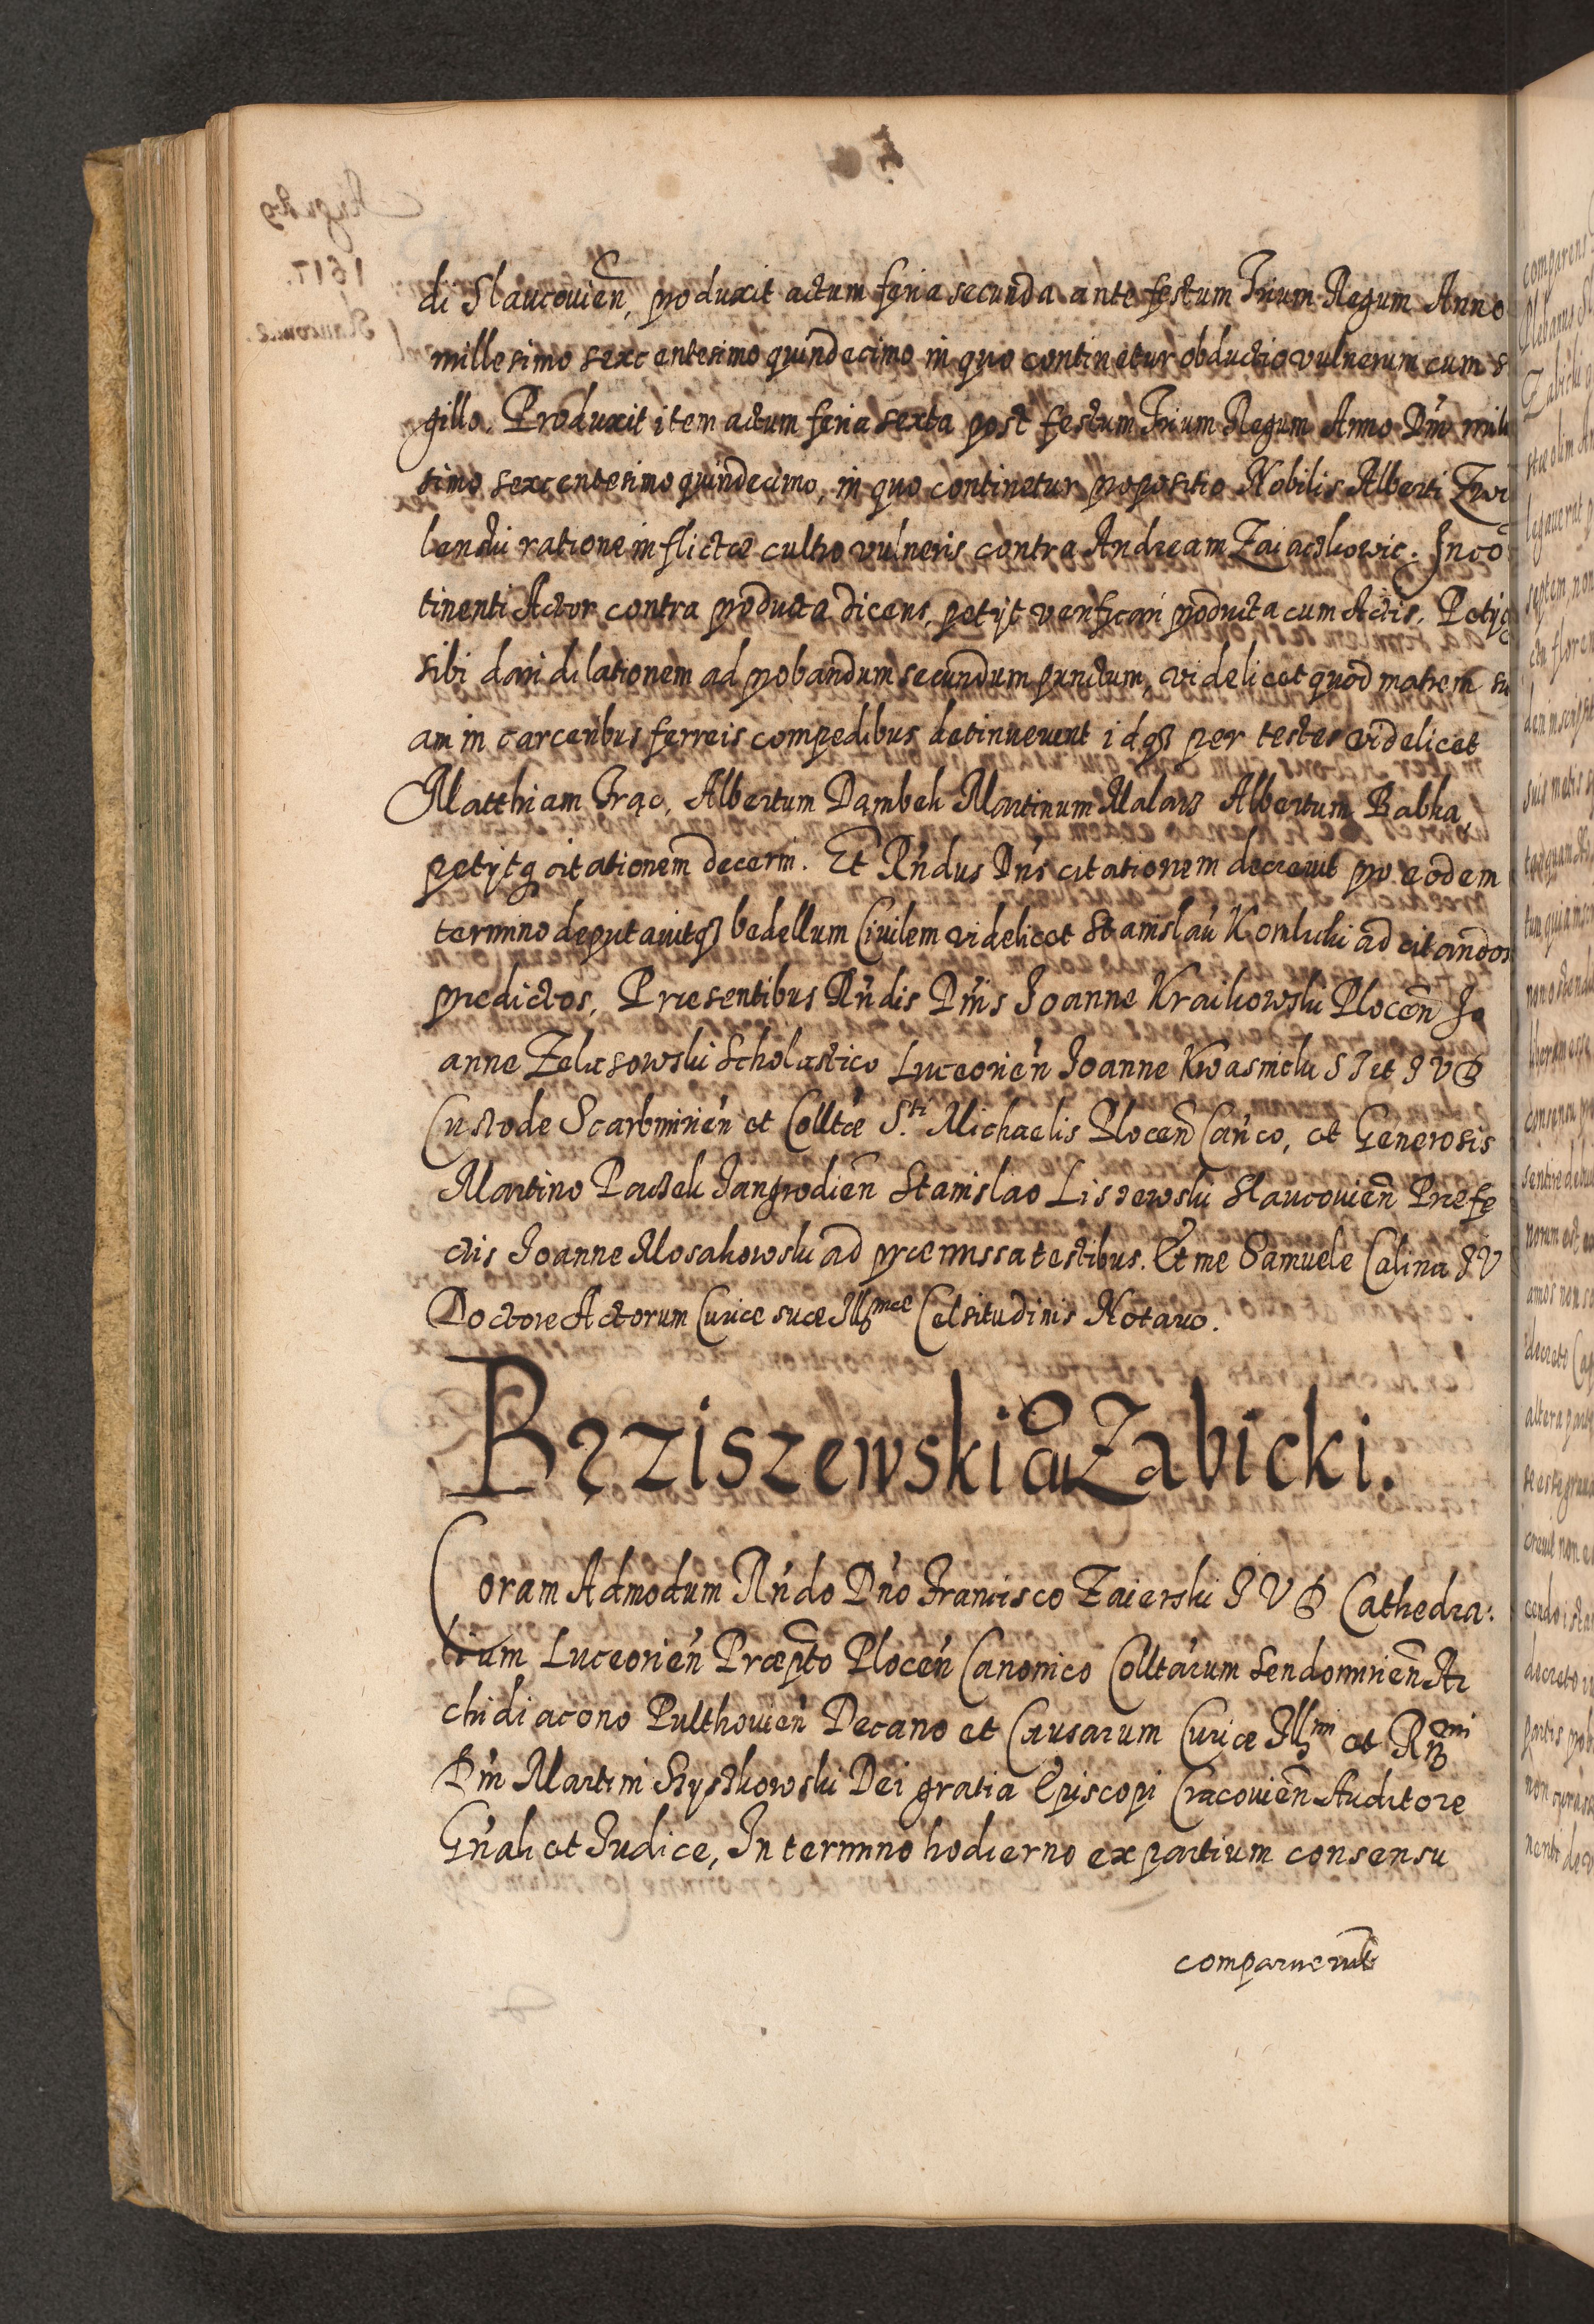 di Slaucouien̄, produxit actum feria secunda ante festum Trium Regum Anno
millesimo sexcentesimo quindecimo in quo continetur obductio vulnerum cum s
gillo. Produxit item actum feria sexta post festum Trium Regum Anno Dn̄i mill
simo sexcentesimo quindecimo, in quo continetur propositio Nobilis Alberti
ratione inflictæ cultro vulneris contra Andream Zaiączkowic. Incō
tinenti Actor contra producta dicens, petijt verificari producta cum Actis. Petijt
sibi dari dilationem ad probandum secundum punctum, videlicet quod matrem su
am in carceribus ferreis compedibus detinuerunt idq₃ per testes videlicet
Matthiam Frąc, Albertum Dąmbek Martinum Malarz Albertum Babka,
petijtq citationem decerni. Et Rn̄dus Dn̄s citationem decreuit pro eodem
termino deputauitq₃ bedellum Ciuilem videlicet Stanislaū ad citandos
prædictos. Præsentibus Rn̄dis Dn̄is Joanne Kraikowski Plocen̄ Jo
anne Zelasowski Scholastico Luceorien̄ Joanne Kwasnicki S T et J V D
Custode Scarbimirien̄ et Colltæ S.ti Michaelis Plocen̄ Can̄co, et Generosis
Martino Paczek Jangrodien̄ Stanislao Liszewski Slaucouien̄ Præfe
ctis Joanne Mosakowski ad præmissa testibus. Et me Samuele Calina J V
Doctore Actorum Curiæ suæ Illmæ Celsitudinis Notario.
Bęziszewski cū Zabicki.
Coram Admodum Rn̄do Dn̄o Francisco Zaierski J V D Cathedra:
lium Luceorien̄ Præpto Plocen̄ Canonico Colltarum Sendomirien̄ Ar
chidiacono Pulthouien̄ Decano et Causarum Curiæ Illmi et Rmi
Dn̄i Martini Szyszkowski Dei gratia Episcopi Cracouien̄ Auditore
Gn̄ali et Judice, In termino hodierno ex partium consensu
comparuerunt